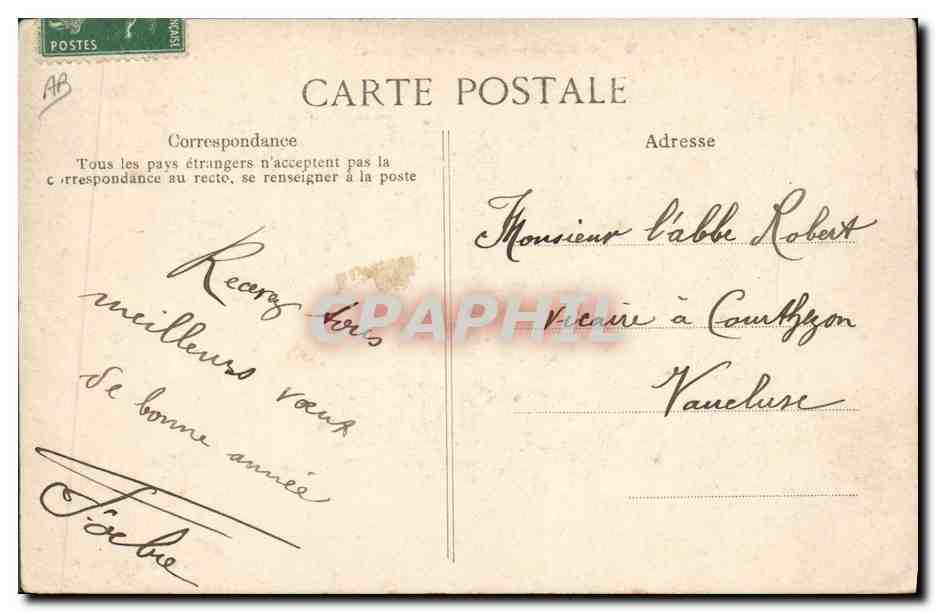 POSTES
AB
CARTE POSTALE
Correspondance
Tous les pays étrangers n'acceptent pas la
correspondance au recto, se renseigner à la poste
Adresse
Monsieur l'abbe Robert
vicaire à Courthezon
Vaucluse
Recevez
meilleurs voeux
de bonne année
CPAPHIL